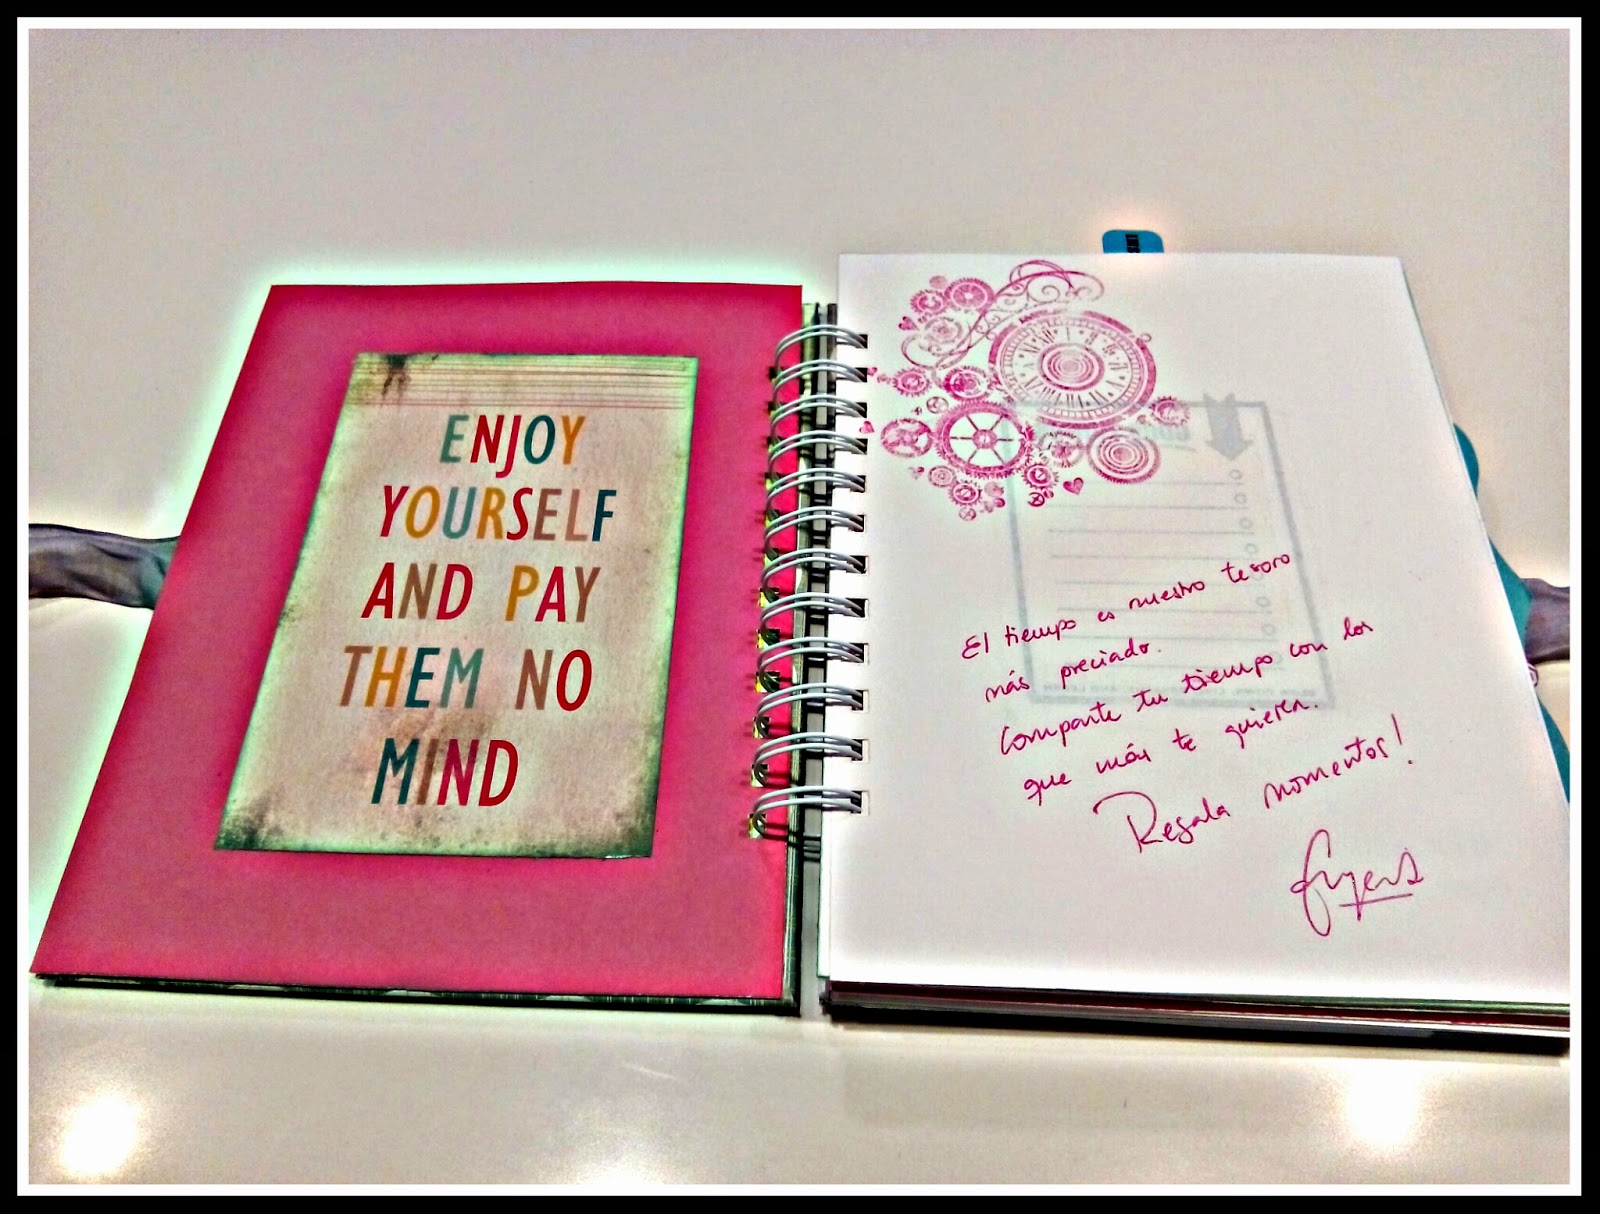 ENJOY
YOURSELF
AND PAY
THEM NO
MIND
El tiempo es nuestro tesoro
más preciado.
Comparte tu tiempo con los
que más te quieren.
Regala momentos!